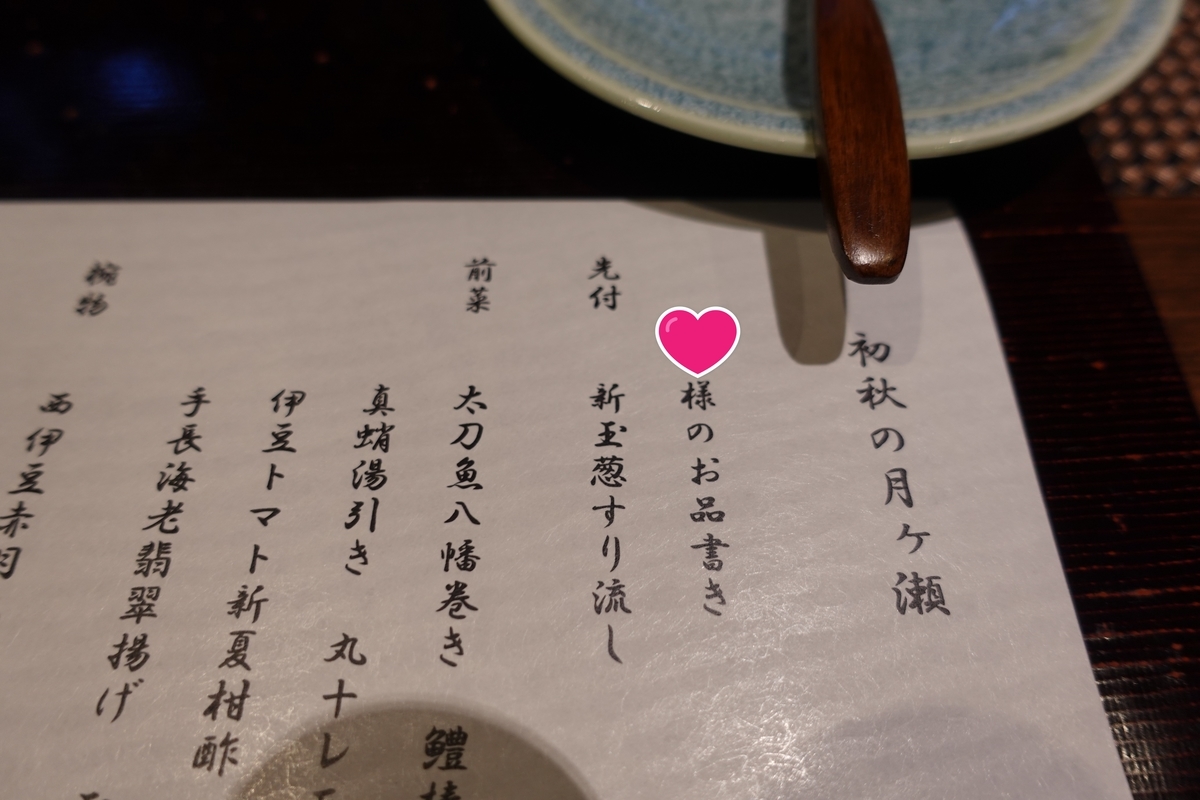 初秋の月ヶ瀬
様のお品書き
先付
新玉葱すり流し
前菜
太刀魚八幡巻き 鱧
真蛸湯引き 丸十レ
伊豆トマト新夏柑酢
手長海老翡翠揚げ
椀物
西伊豆赤